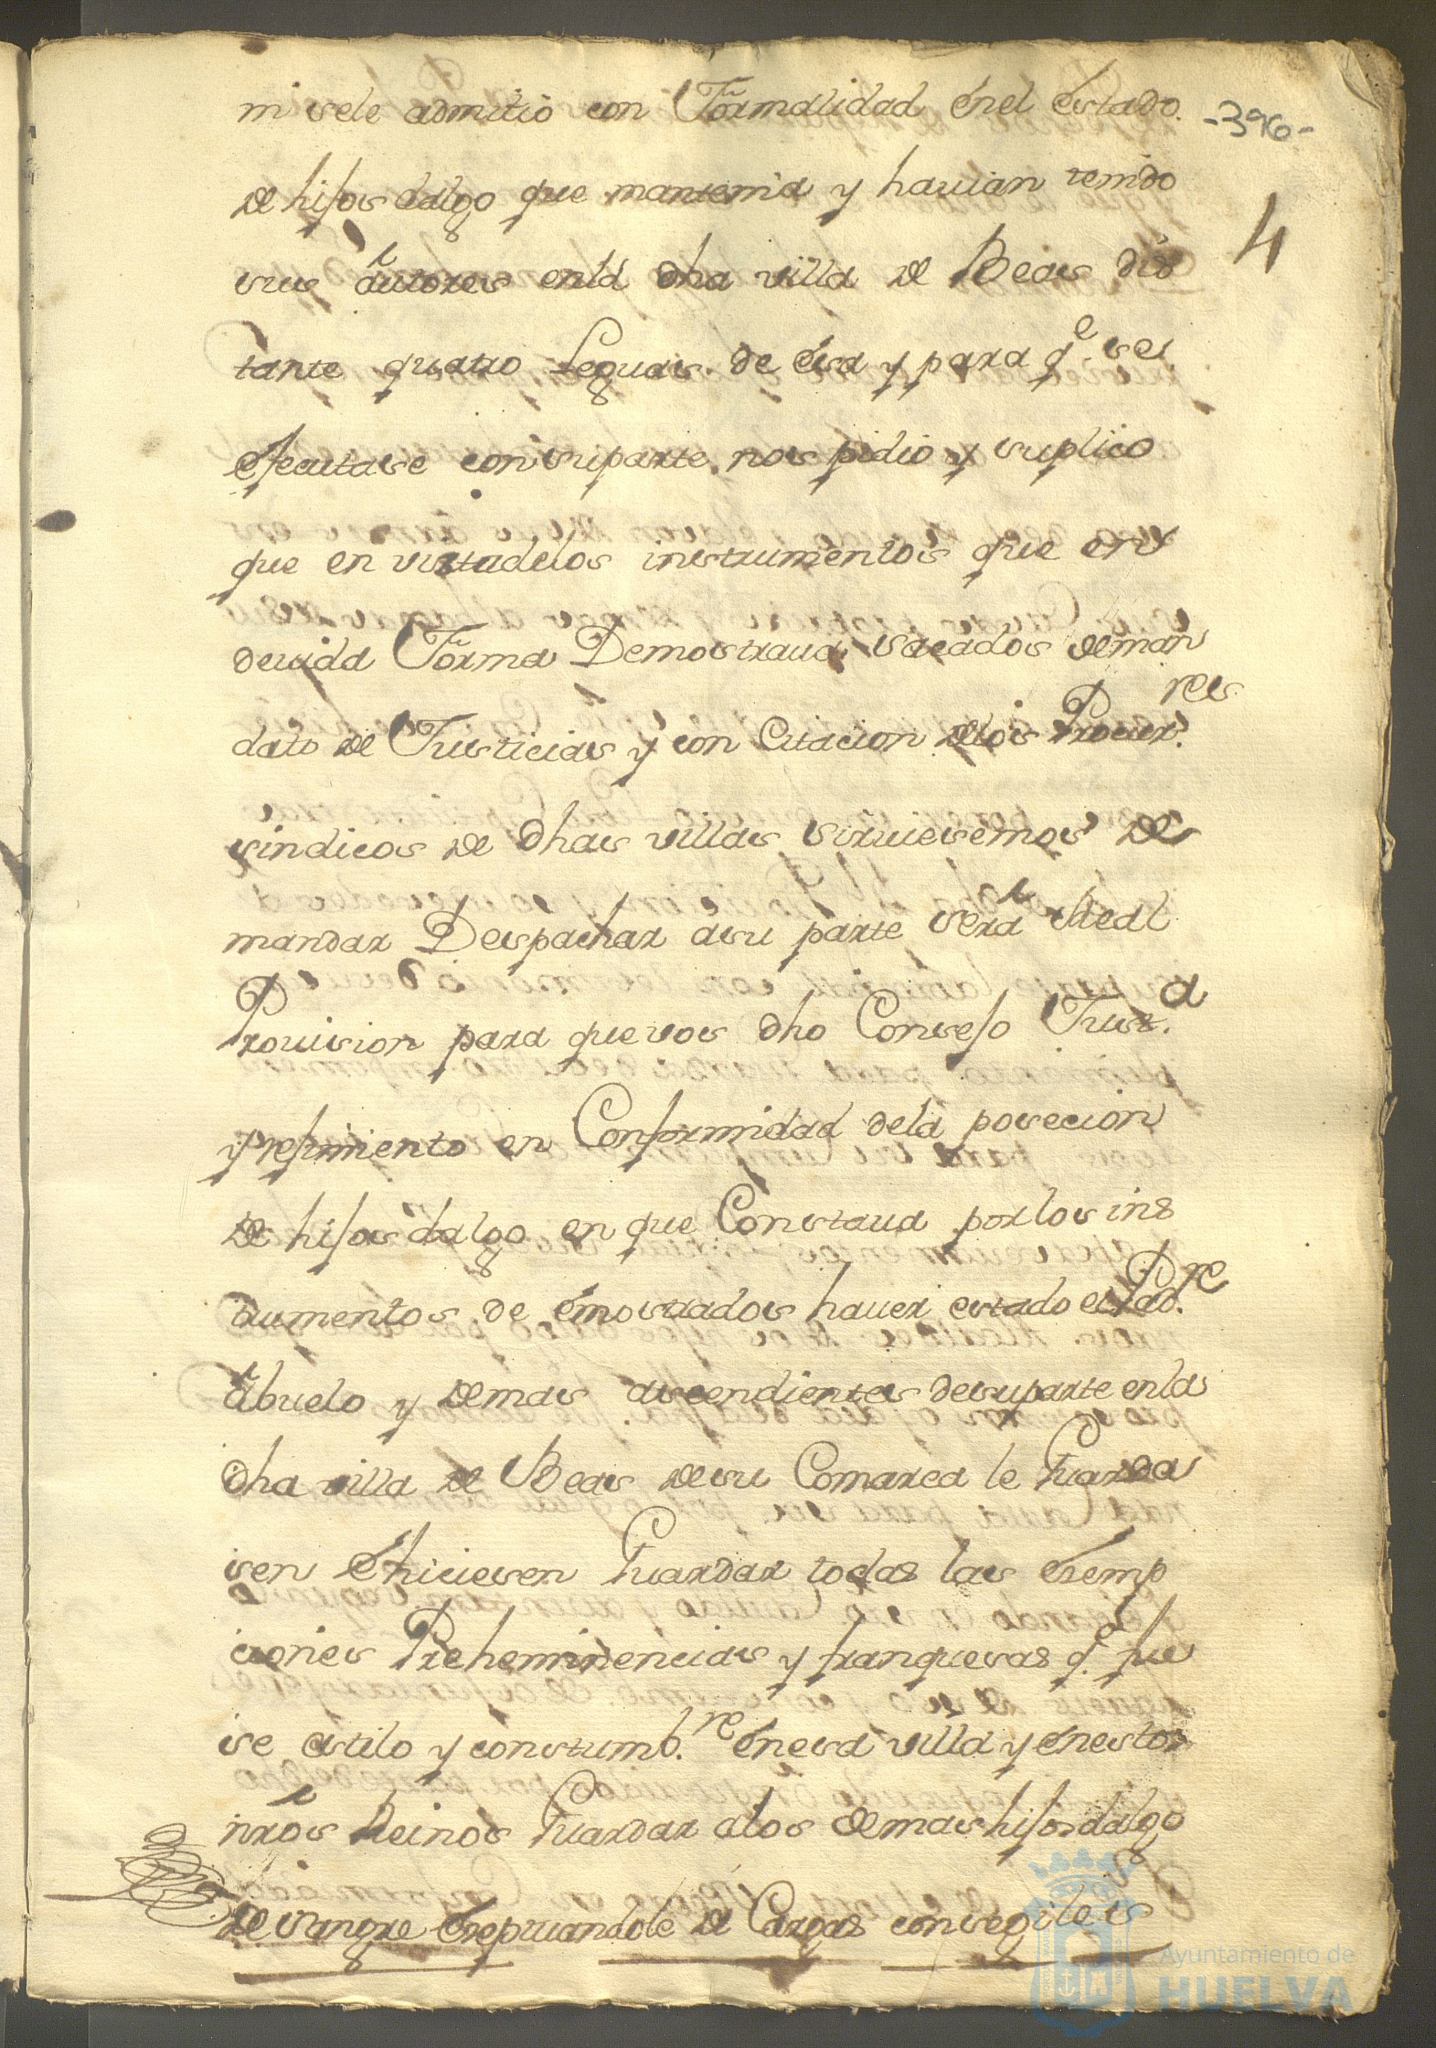 -396-
4
misele admitio con Formalidad énel éstado
de hijos dalgo que mantenia y hauian tenido
sus áutores enlá dha villa de Beas dis
tante quatro Leguas de ésa y para q.e se
éjecutase consuparte nos pidio y suplico
que en virtudelos instrumentos que en
deuida Forma Demostraua sacados deman
dato de Justicias y con Citacion delos Procur.res
sindicos de dhas villas siruiesemos de
mandar Despachar asu parte será Real
Prouision para que vos dho Consejo Just.a
y rejimiento en Conformidad dela posecion
de hijos dalgo en que Constaua por los ins
trumentos de émostrados hauer estado el Pad.re
ábuelo y demas ascendientes desuparte enla
dha villa de Beas desu Comarca le Guarda
sen éhiciesen Guardar todas las éxemp
ciones Preheminencias y franquesas q.e fue
se estilo y constumb.re énesa villa y énestos
nrós Reinos Guardar alos demas hijos dalgo
de sangre Érepruandole de Cargas consegiles
Ayuntamiento de
HUELVA